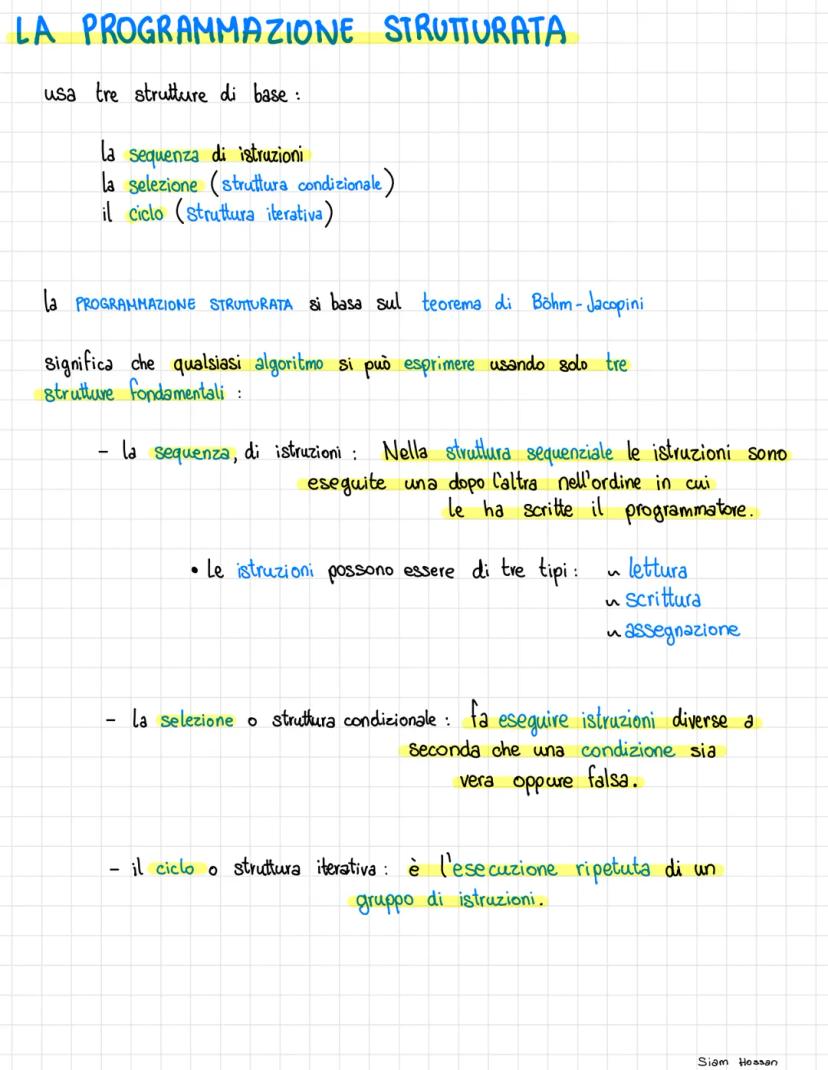 LA PROGRAMMAZIONE STRUTTURATA
usa tre strutture di base :
la sequenza di istruzioni
la selezione (struttura condizionale)
il ciclo (struttura iterativa)
la PROGRAMMAZIONE STRUTTURATA si basa sul teorema di Böhm-Jacopini
significa che qualsiasi algoritmo si può esprimere usando solo tre
strutture fondamentali :
- la sequenza, di istruzioni : Nella struttura sequenziale le istruzioni sono
eseguite una dopo l'altra nell'ordine in cui
le ha scritte il programmatore.
• Le istruzioni possono essere di tre tipi : ~ lettura
~ scrittura
~ assegnazione
- la selezione o struttura condizionale : fa eseguire istruzioni diverse a
seconda che una condizione sia
vera oppure falsa.
- il ciclo o struttura iterativa : è l'esecuzione ripetuta di un
gruppo di istruzioni.
Siam Hossan